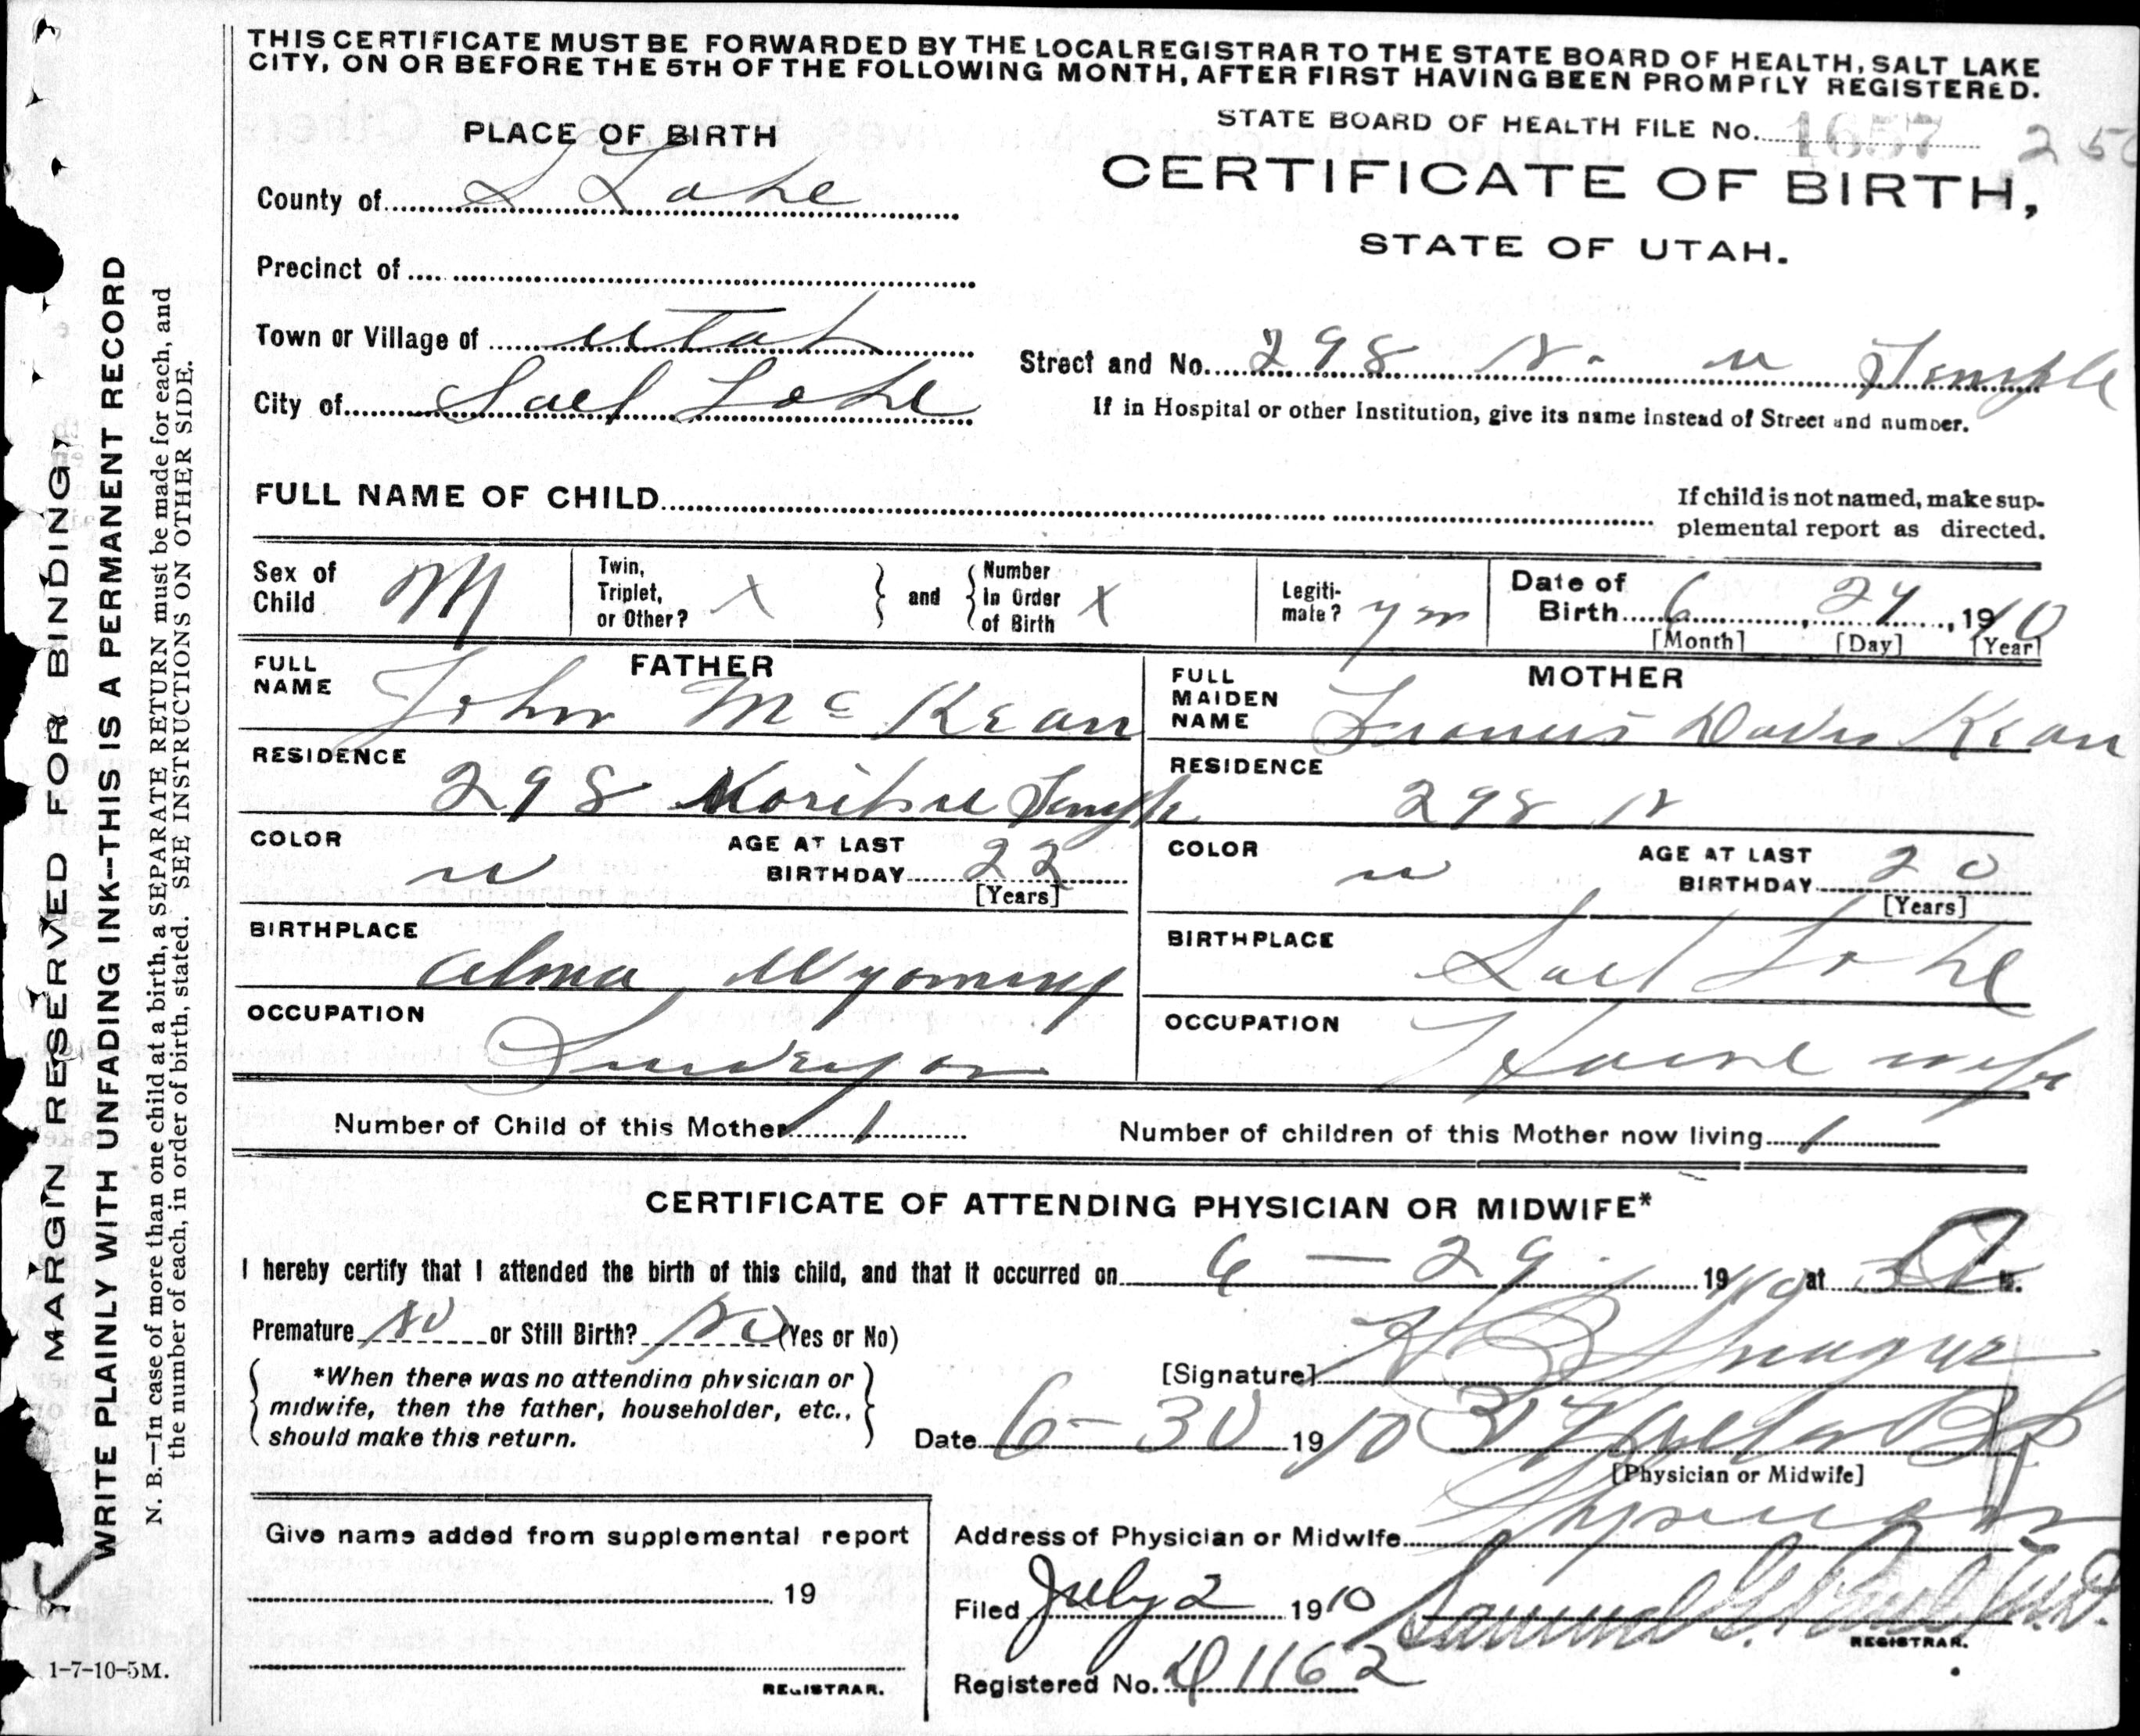 THIS CERTIFICATE MUST BE FORWARDED BY THE LOCAL REGISTRAR TO THE STATE BOARD OF HEALTH, SALT LAKE
CITY, ON OR BEFORE THE 5TH OF THE FOLLOWING MONTH, AFTER FIRST HAVING BEEN PROMPTLY REGISTERED.
PLACE OF BIRTH
STATE BOARD OF HEALTH FILE No. 1657 250
CERTIFICATE OF BIRTH,
STATE OF UTAH.
County of S Lake
Precinct of
Town or Village of Utah
City of Salt Lake
Street and No. 298 N. W Temple
If in Hospital or other Institution, give its name instead of Street and number.
FULL NAME OF CHILD
If child is not named, make sup-
plemental report as directed.
Sex of Child M
Twin, Triplet, or Other? X and Number In Order of Birth X
Legiti-mate? yes
Date of Birth 6, 29, 1910
[Month] [Day] [Year]
FATHER
FULL NAME John Mc Kean
RESIDENCE
298 North W Temple
COLOR w AGE AT LAST BIRTHDAY 22
[Years]
BIRTHPLACE
Alma, Wyoming
OCCUPATION
Surveyor
MOTHER
FULL MAIDEN NAME Francis Davis Kean
RESIDENCE
298 N
COLOR w AGE AT LAST BIRTHDAY 20
[Years]
BIRTHPLACE
Salt Lake
OCCUPATION
House wife
Number of Child of this Mother 1
Number of children of this Mother now living 1
CERTIFICATE OF ATTENDING PHYSICIAN OR MIDWIFE*
I hereby certify that I attended the birth of this child, and that it occurred on 6 - 29 1910 at 3 A m.
Premature No or Still Birth? No (Yes or No)
*When there was no attending physician or
midwife, then the father, householder, etc.,
should make this return.
[Signature] H B Sprague
Date 6-30 1910
[Physician or Midwife]
Give name added from supplemental report
19
REGISTRAR.
Address of Physician or Midwife
Filed July 2 1910 Samuel G. Paul M.D.
REGISTRAR.
Registered No. D1162
MARGIN RESERVED FOR BINDING
WRITE PLAINLY WITH UNFADING INK--THIS IS A PERMANENT RECORD
N. B.—In case of more than one child at a birth, a SEPARATE RETURN must be made for each, and
the number of each, in order of birth, stated. SEE INSTRUCTIONS ON OTHER SIDE.
1-7-10-5M.